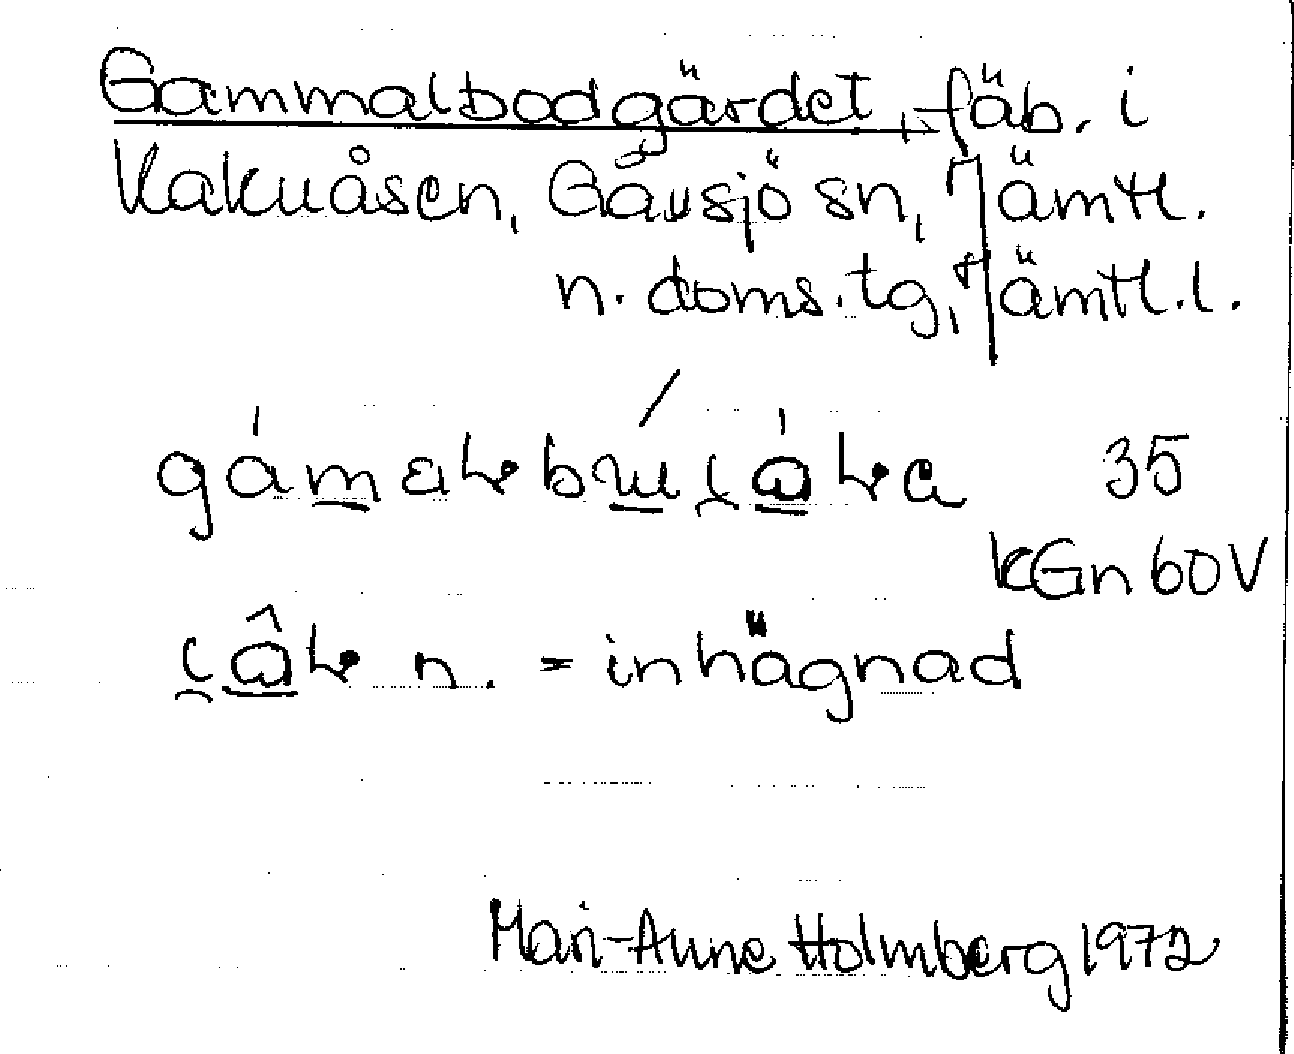 Gammalbodgärdet, fäb. i
Kakuåsen, Gåxsjö sn, Jämtl.
n. doms. tg, Jämtl. l.
35
kGn 60V
n. = inhägnad
Mari-Anne Holmberg 1972